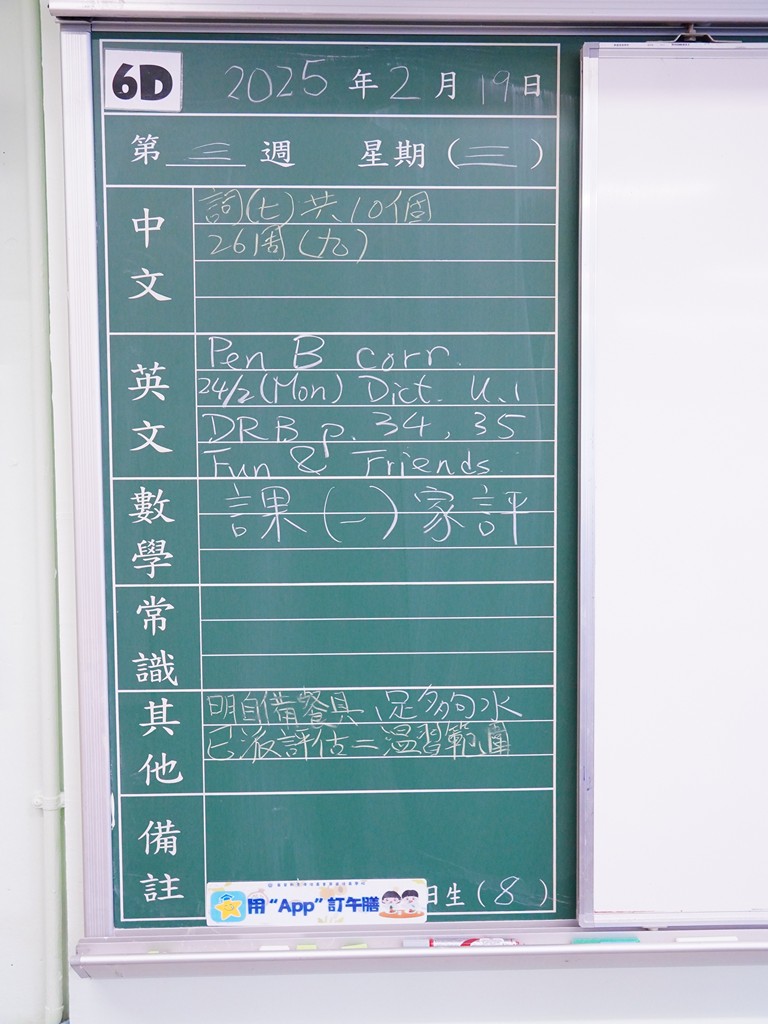 6D 2025年2月19日
第三週 星期(三)
中文
詞(七)共10個
26周(九)
英文
Pen B corr.
24/2(Mon) Dict. U.1
DRB p. 34, 35
Fun & Friends
數學
課(一)家評
常識
其他
明自備餐具、足夠水
已派評估二溫習範圍
備註
用“App”訂午膳
日生(8)